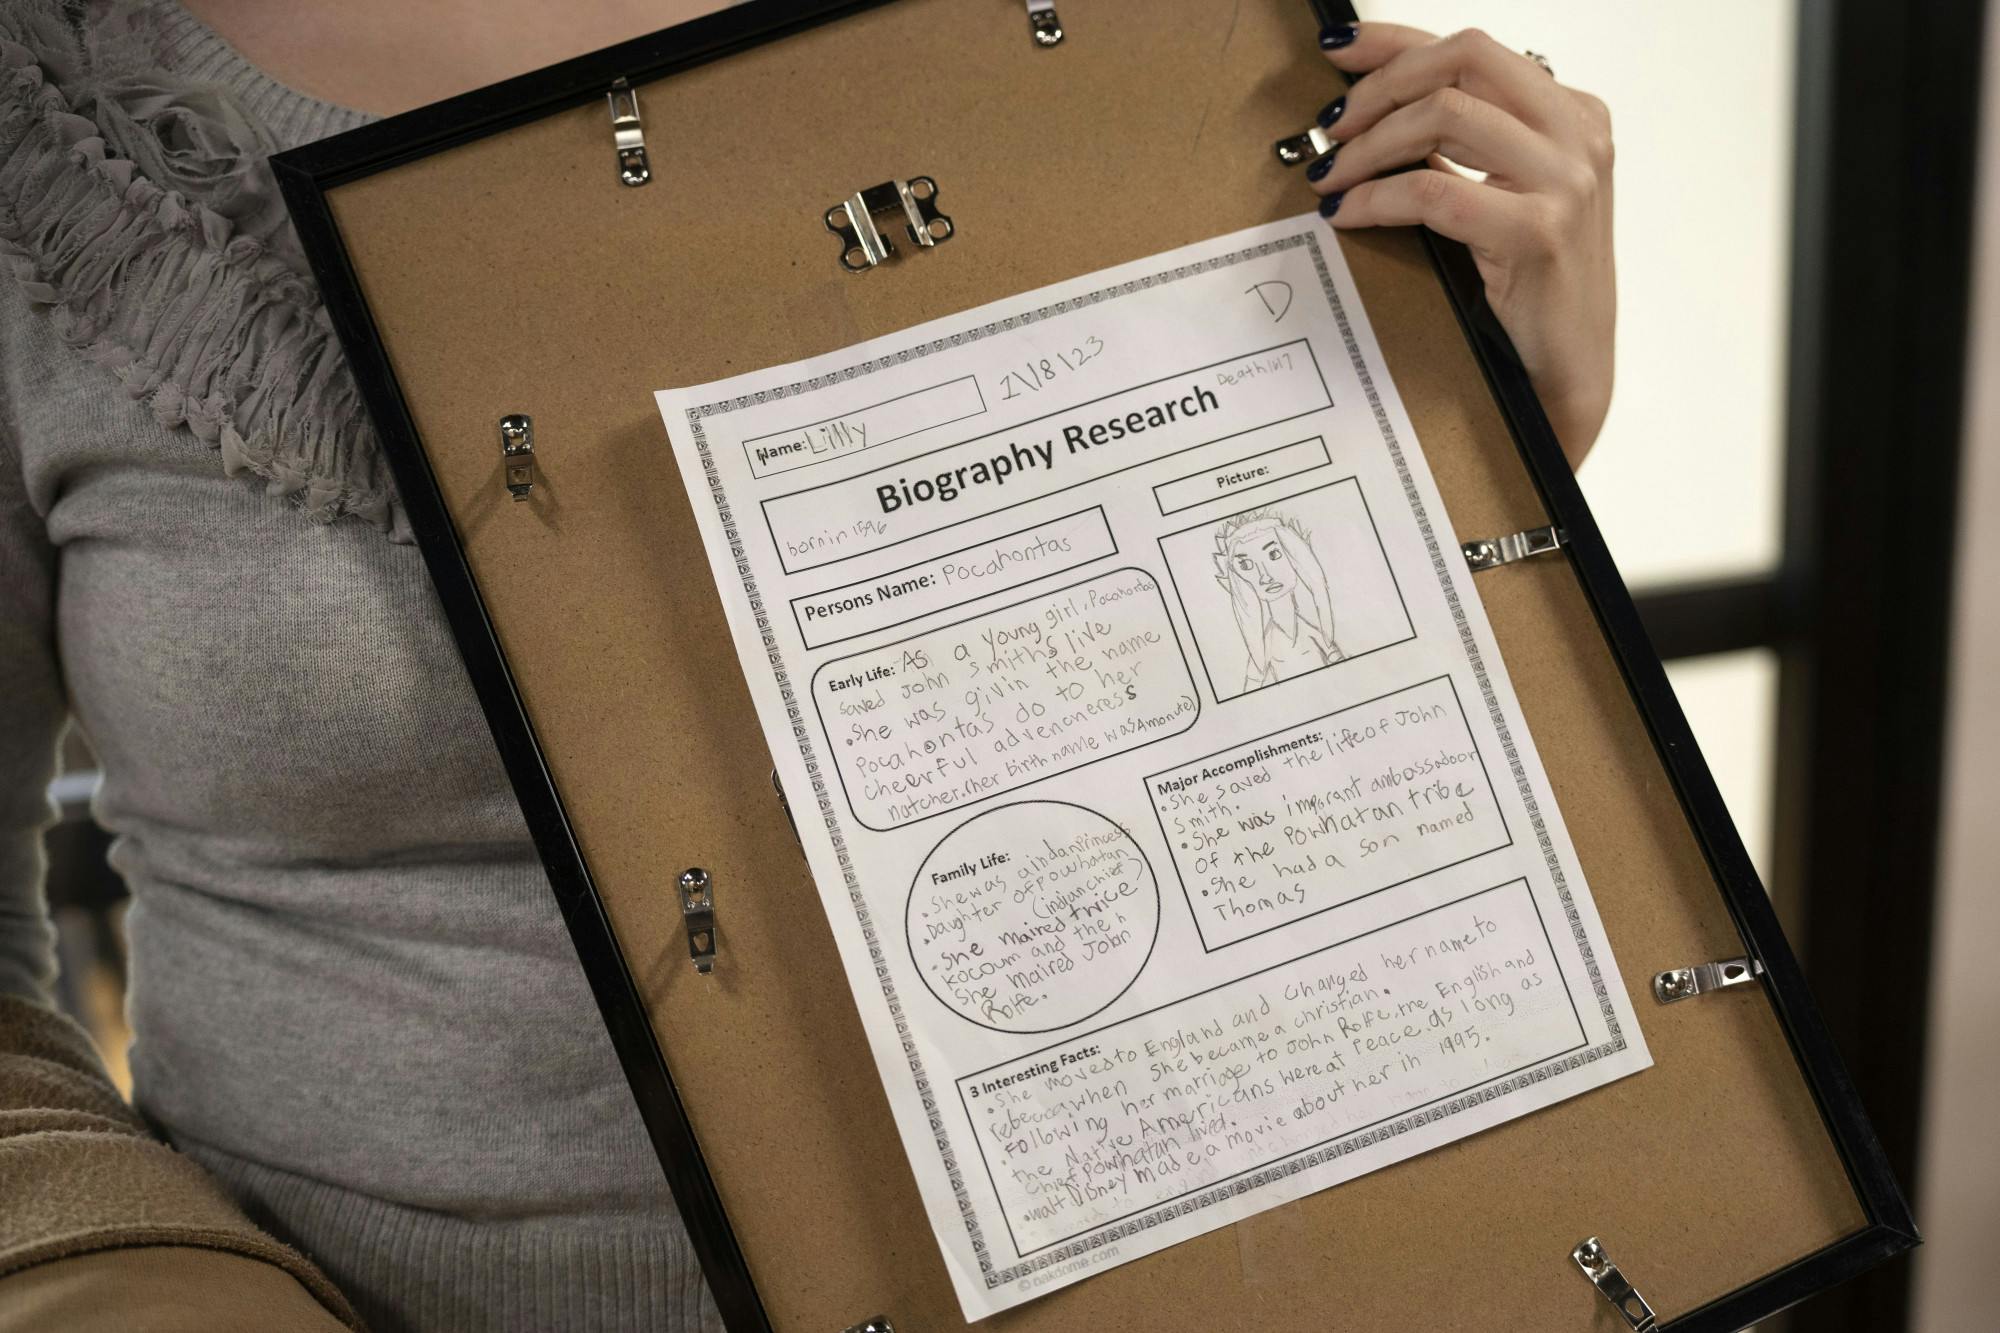 D
Name: Lilly
11/8/23
Biography Research
Death 1617
born in 1596
Persons Name: Pocahontas
Picture:
Early Life: As a young girl, Pocahontas
saved John Smiths live
•She was givin the name
Pocahontas do to her
cheerful
natcher. (her birth name was Amonute)
Family Life:
•She was a indan Princess
•Daughter of Powhatan
(indian chief)
•She maired twice
Kocoum and then
She maired John
Rolfe.
Major Accomplishments:
•She saved the life of John
Smith.
•She was imporant ambassadoor
of the Powhatan tribe
•She had a son named
Thomas
3 Interesting Facts:
•She moved to England and changed her name to
rebecca when She became a christian.
•Following her marriage to John Rolfe, the English and
the Native Americans were at Peace. as long as
chief Powhatan lived.
•walt Disney made a movie about her in 1995.